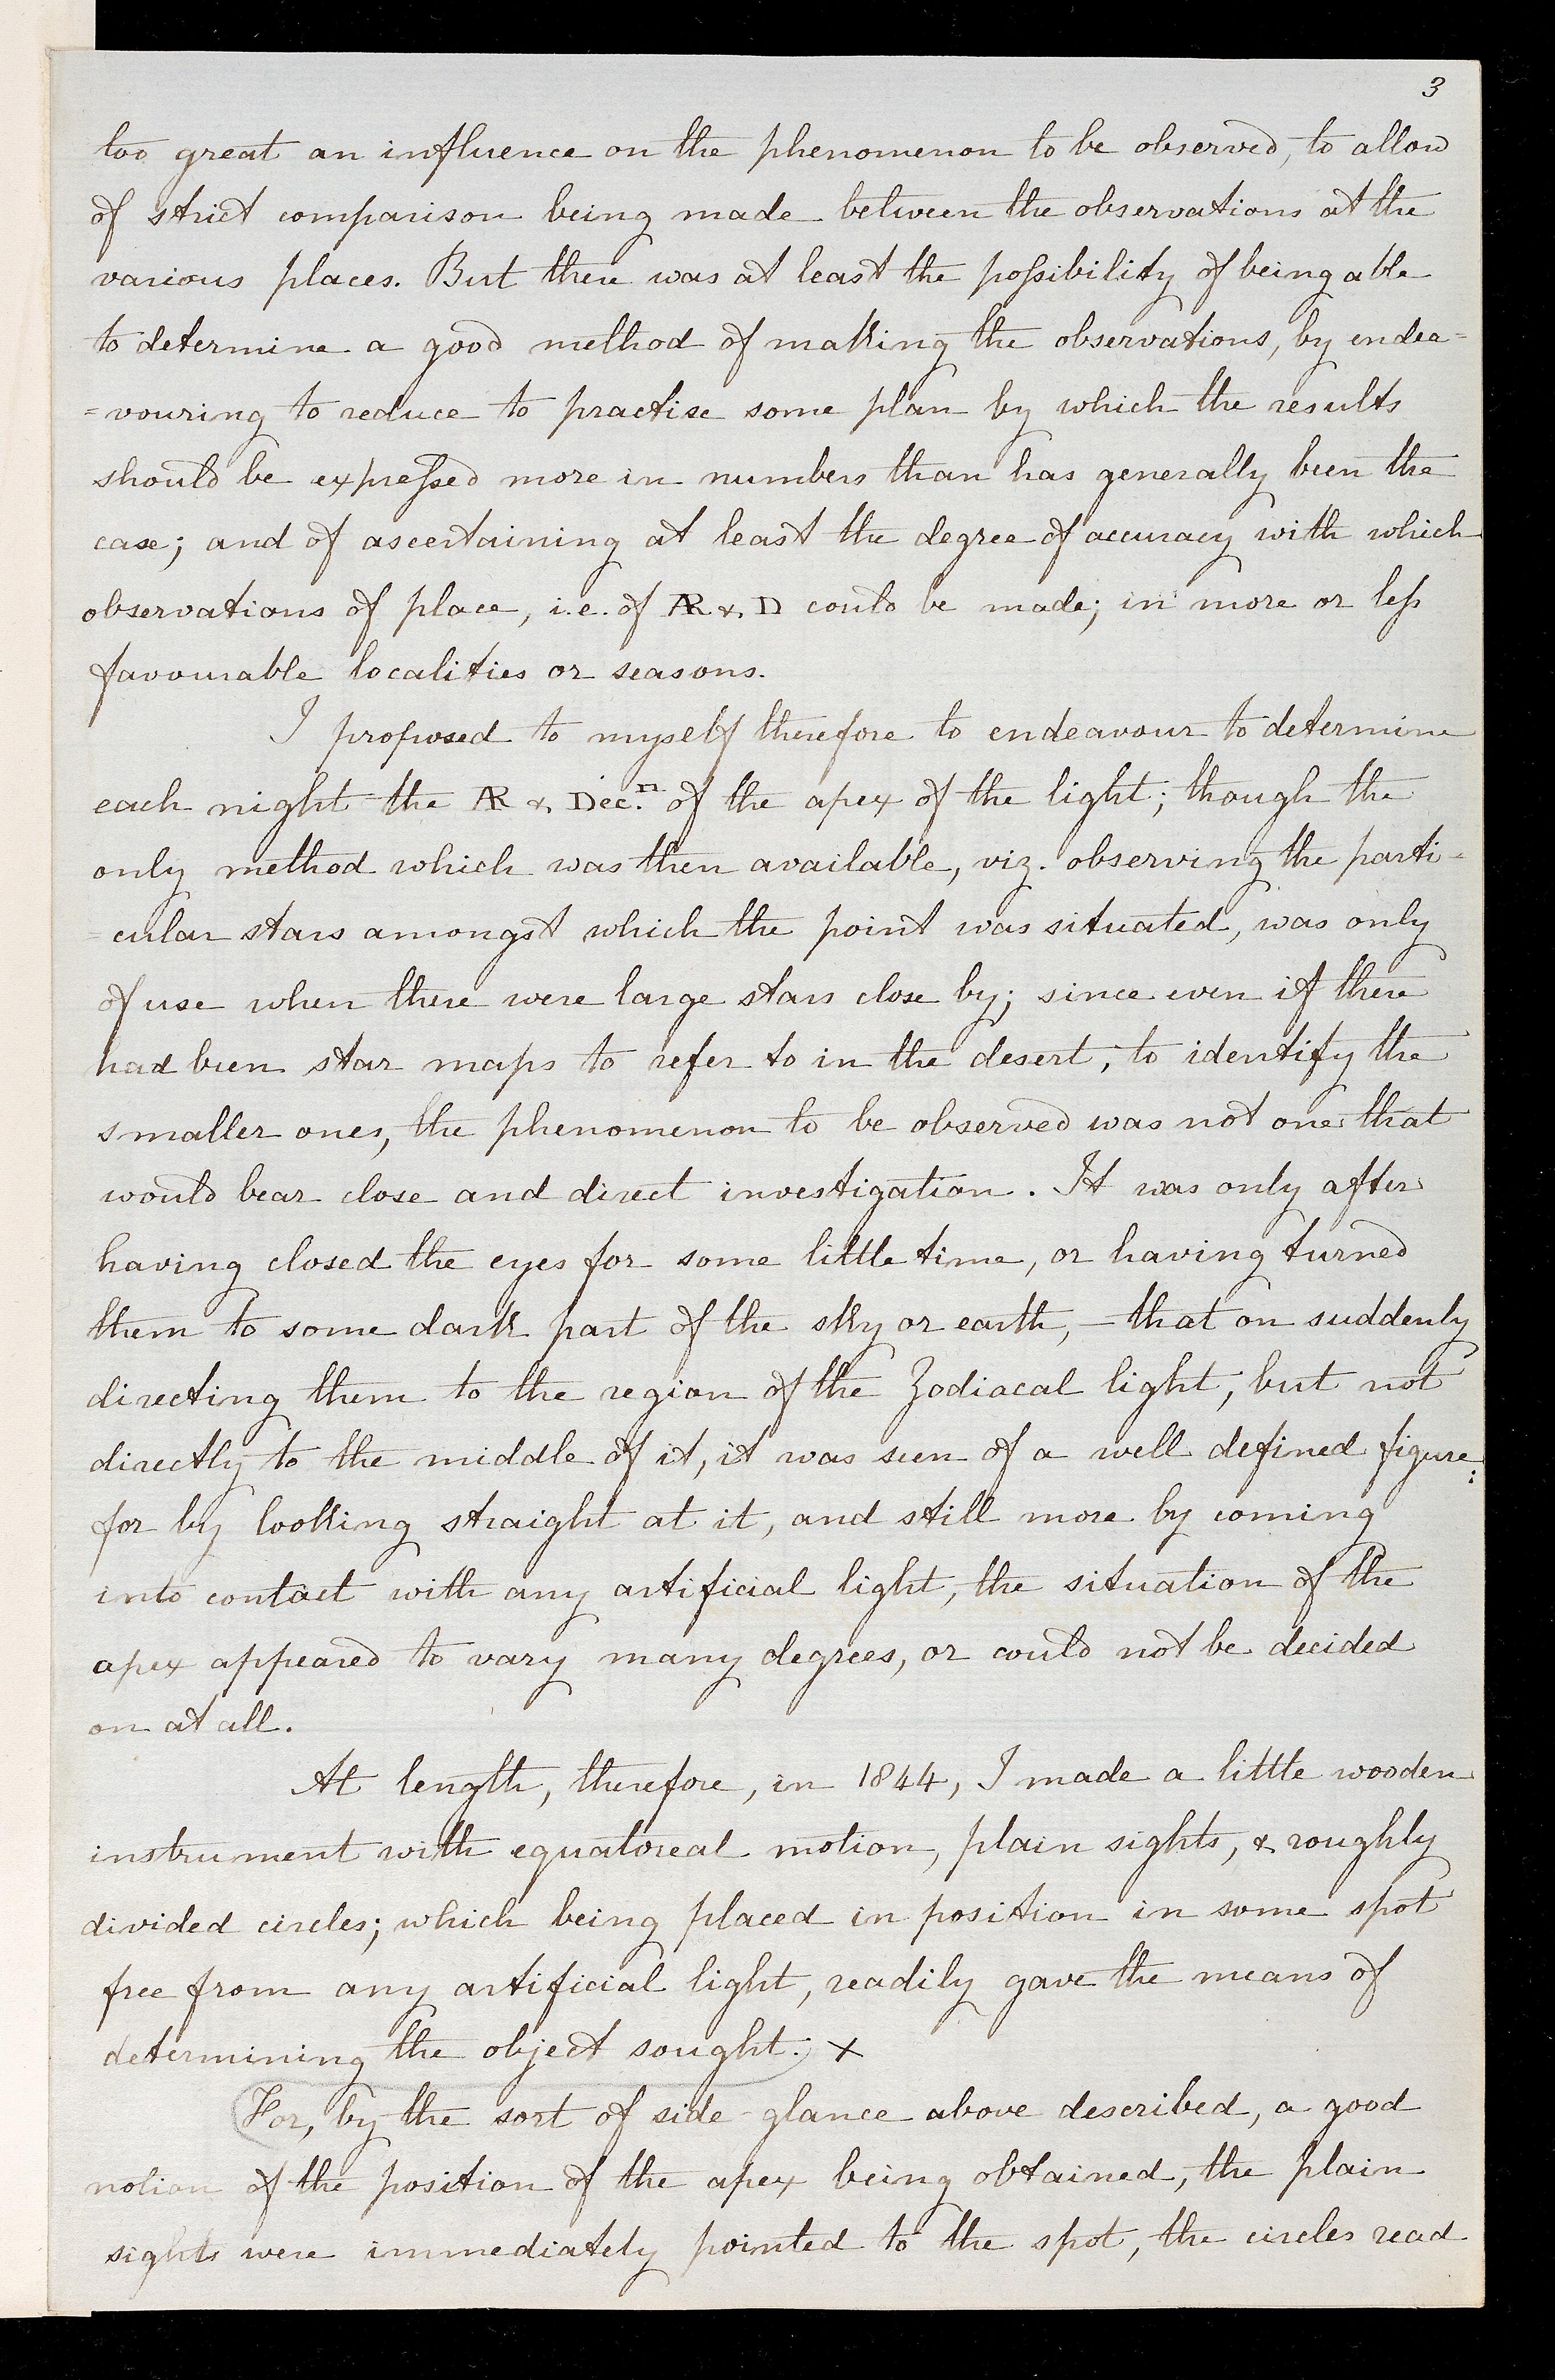 3
too great an influence on the phenomenon to be observed, to allow
of strict comparison being made between the observations at the
various places. But there was at least the poſsibility of being able
to determine a good method of making the observations, by endea=
=vouring to reduce to practise some plan by which the results
should be expreſsed more in numbers than has generally been the
case; and of ascertaining at least the degree of accuracy with which
observations of place, i.e. of ÆR & D could be made; in more or leſs
favourable localities or seasons.
I proposed to myself therefore to endeavour to determine
each night the ÆR & Decⁿ. of the apex of the light; though the
only method which was then available, viz. observing the parti=
=cular stars amongst which the point was situated, was only
of use when there were large stars close by; since even if there
had been star maps to refer to in the desert, to identify the
smaller ones, the phenomenon to be observed was not one that
would bear close and direct investigation. It was only after
having closed the eyes for some little time, or having turned
them to some dark part of the sky or earth, – that on suddenly
directing them to the region of the Zodiacal light, but not
directly to the middle of it, it was seen of a well defined figure:
for by looking straight at it, and still more by coming
into contact with any artificial light, the situation of the
apex appeared to vary many degrees, or could not be decided
on at all.
At length, therefore, in 1844, I made a little wooden
instrument with equatoreal motion, plain sights, & roughly
divided circles; which being placed in position in some spot
free from any artificial light, readily gave the means of
determining the object sought. ×
For, by the sort of side-glance above described, a good
notion of the position of the apex being obtained, the plain
sights were immediately pointed to the spot, the circles read